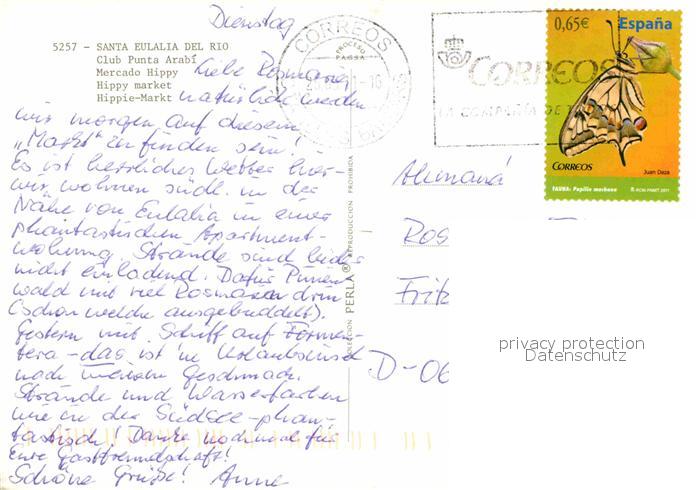 Dienstag
5257 - SANTA EULALIA DEL RIO
Club Punta Arabí
Mercado Hippy
Hippy market
Hippie-Markt
Liebe Rosmarie,
natürlich werden
wir morgen auf diesem
„Markt“ zu finden sein!
Es ist herrliches Wetter hier –
wir wohnen südl. in der
Nähe von Eulalia in einer
phantastischen Apartment-
wohnung. Strände sind leider
nicht einladend. Dafür Pinien
wald mit viel Rosmarin drin
(schon welche ausgebuddelt).
Gestern mit Schiff auf Formen-
tera – das ist 'ne Urlaubsinsel
nach meinem Geschmack.
Strände und Wasserfarben
wie in der Südsee – phan-
tastisch! Danke nochmal für
Eure Gastfreundschaft!
Schöne Grüße! Anne
COLECCION PERLA® REPRODUCCION PROHIBIDA
CORREOS
CORREOS
LA COMPAÑIA DE
0,65€ España
CORREOS
Juan Daza
FAUNA: Papilio machaon
RCM-FNMT 2011
Alemaná
Ros
Fritz
D-06
privacy protection
Datenschutz